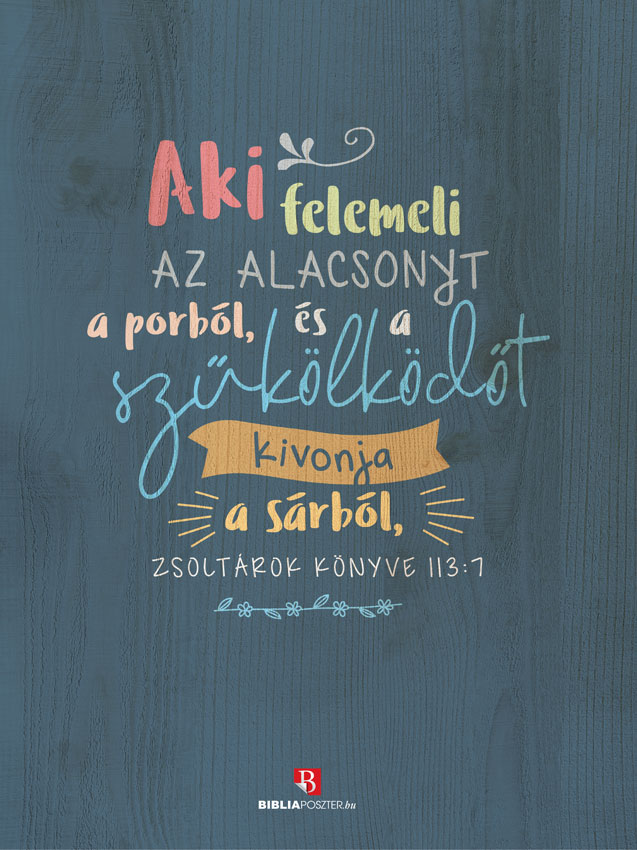 Aki felemeli
AZ ALACSONYT
a porból, és a
szűkölködőt
kivonja
a sárból,
ZSOLTÁROK KÖNYVE 113:7
B
BIBLIAPOSZTER.hu